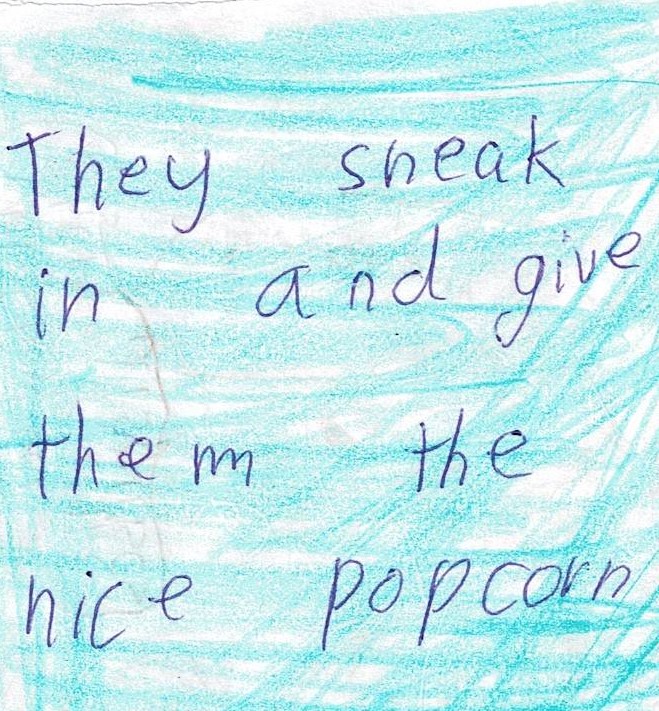 They sneak
in and give
them the
nice popcorn